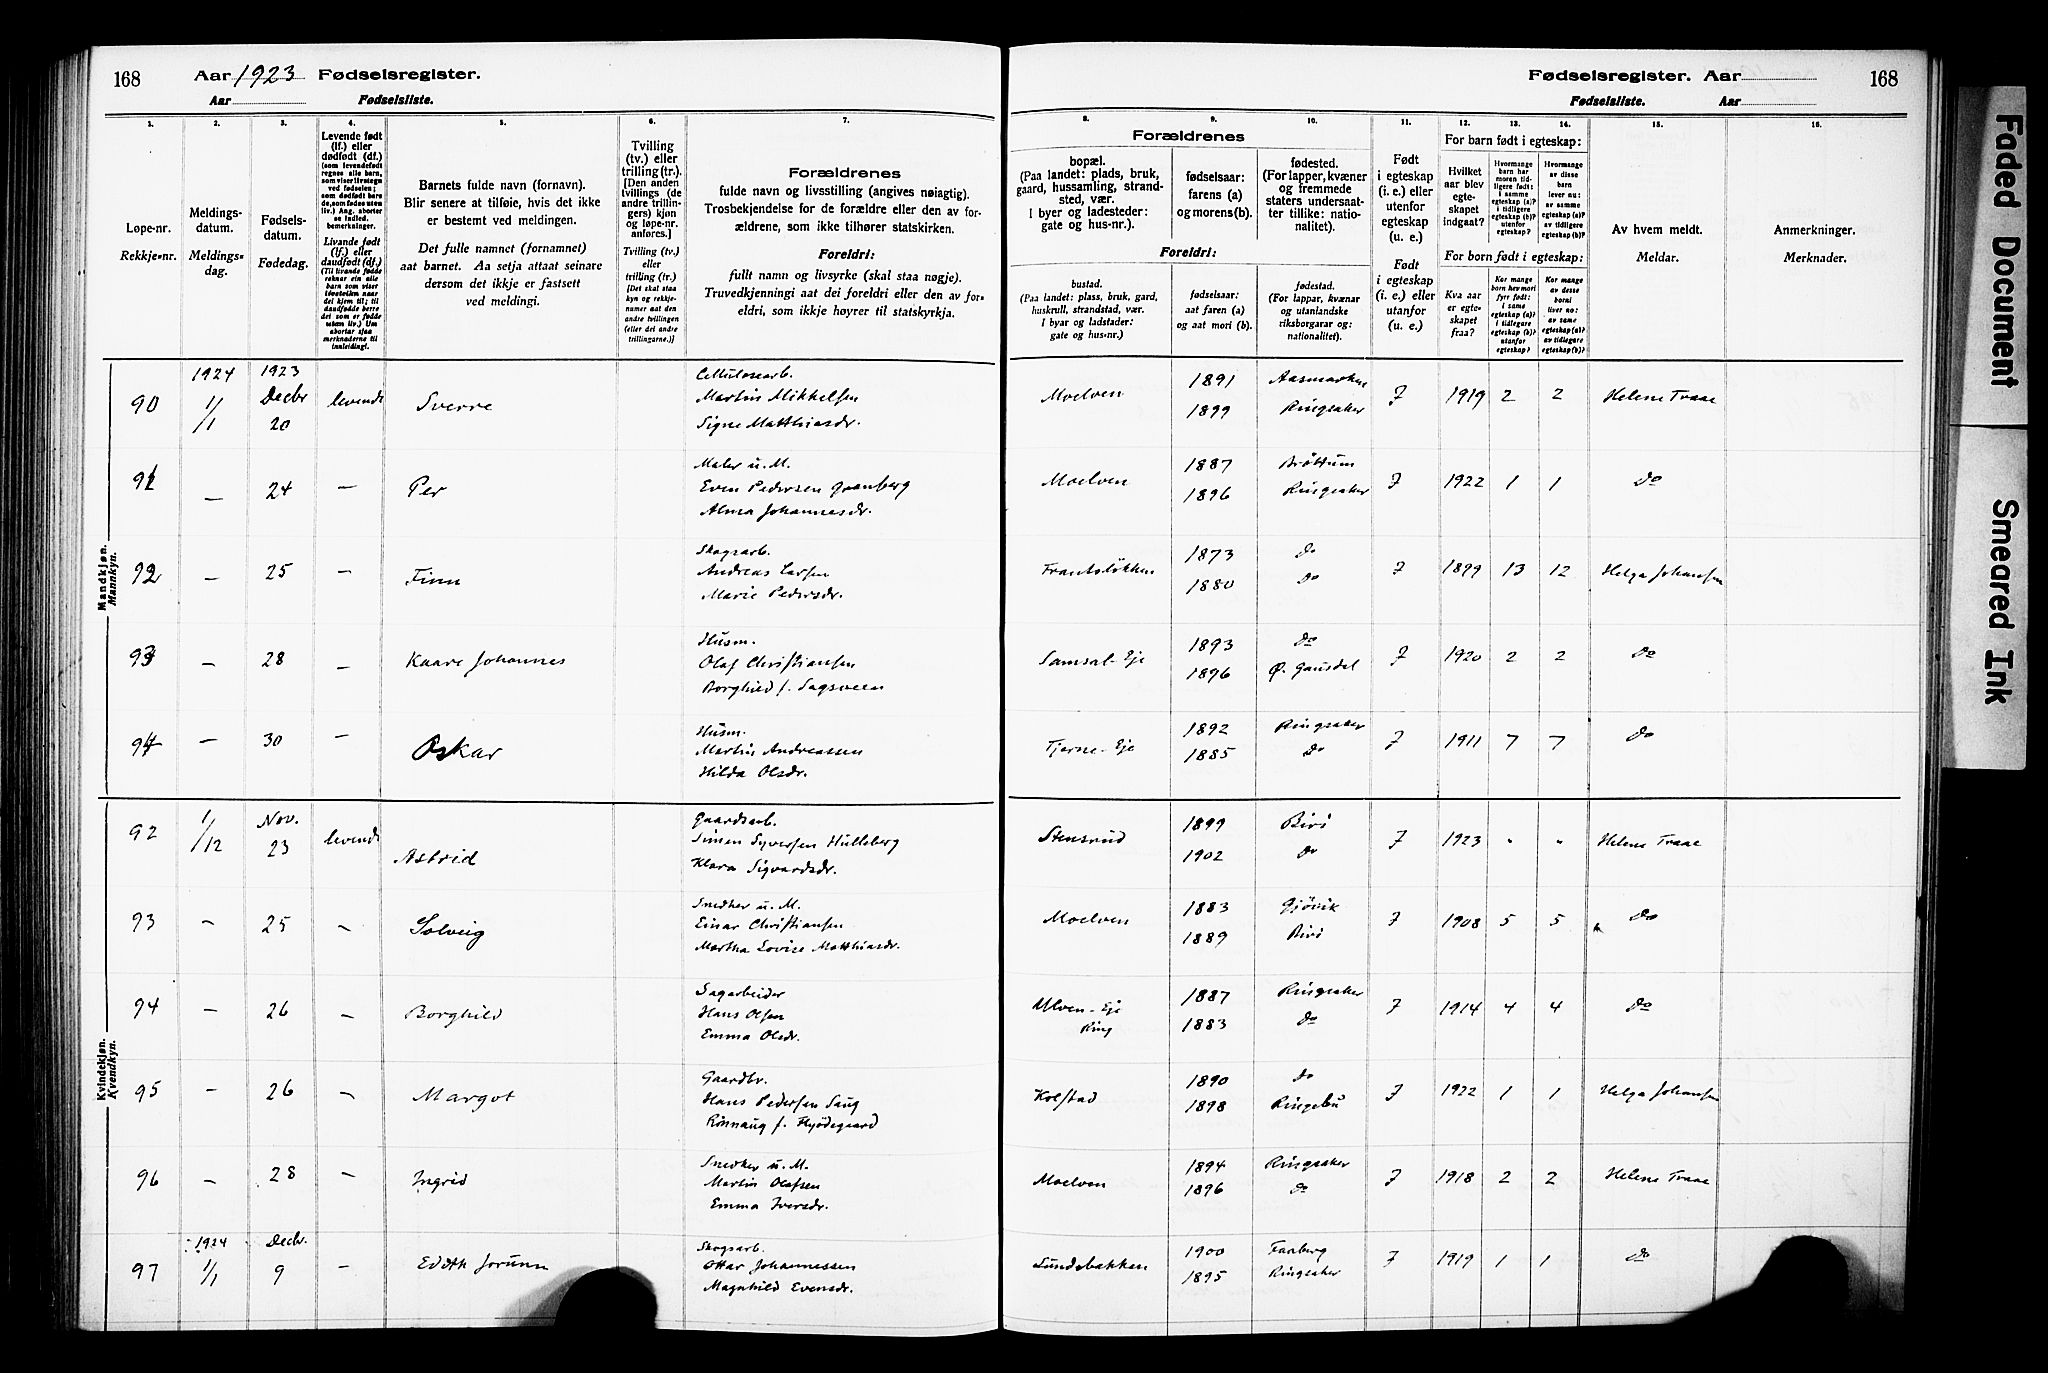 168 Aar 1923 Fødselsregister.
Aar Fødselsliste.
Fødselsregister. Aar 168
Fødselsliste. Aar
1. 2. 3. 4. 5. 6. 7. 8. 9. 10. 11. 12. 13. 14. 15. 16.
Løpe-nr.
Rekkje-nr.
Meldings-
datum.
Meldings-
dag.
Fødsels-
datum.
Fødedag.
Levende født
(lf.) eller
dødfødt (df.)
Livande født
(lf.) eller
daudfødt (df.)
Barnets fulde navn (fornavn).
Blir senere at tilføie, hvis det ikke
er bestemt ved meldingen.
Det fulle namnet (fornamnet)
aat barnet. Aa setja attaat seinare
dersom det ikkje er fastsett
ved meldingi.
Tvilling
(tv.) eller
trilling (tr.).
[Den anden
tvillings (de
andre trillin-
gers) kjøn
og løpe-nr.
anføres.]
Tvilling (tv.)
eller
trilling (tr.)
[Det skal staa
kyn og rekkje-
numer aat den
andre tvillingen
(eller dei andre
trillingarne.)]
Forældrenes
fulde navn og livsstilling (angives nøiagtig).
Trosbekjendelse for de forældre eller den av for-
ældrene, som ikke tilhører statskirken.
Foreldri:
fullt namn og livsyrke (skal staa nøgje).
Truvedkjenningi aat dei foreldri eller den av for-
eldri, som ikkje høyrer til statskyrkja.
Forældrenes
bopæl.
(Paa landet: plads, bruk,
gaard, hussamling, strand-
sted, vær.
I byer og ladesteder:
gate og hus-nr.).
fødselsaar:
farens (a)
og morens (b).
fødested.
(For lapper, kvæner
og fremmede
staters undersaat-
ter tillike: natio-
nalitet).
Foreldri:
bustad.
(Paa landet: plass, bruk, gard,
huskrull, strandstad, vær.
I byar og ladstader:
gate og hus-nr.)
fødselsaar:
aat faren (a)
og aat mori (b).
fødestad.
(For lappar, kvænar
og utanlandske
riksborgarar og:
nationalitet).
Født
i egteskap
(i. e.) eller
utenfor
egteskap
(u. e.)
Født
i egteskap
(i. e.) eller
utanfor
(u. e.)
For barn født i egteskap:
Hvilket
aar blev
egte-
skapet
indgaat?
For born fødde i egteskap:
Kva aar
er egte-
skapet
fraa?
Av hvem meldt.
Meldar.
Anmerkninger.
Merknader.
Mandkjøn.
Mannkyn.
90 1924 1/1 1923 Decbr 20 levende Sverre
Cellulosearb.
Martin Mikkelsen
Signe Matthiasdr.
Moelven 1891 1899 Aasmarken Ringsaker J 1919 2 2 Helene Traae
91 — 24 — Per
Maler u. M.
Even Pedersen Granberg
Alma Johannesdr.
Moelven 1887 1896 Brøttum Ringsaker J 1922 1 1 Do
92 — 25 — Finn
Skogsarb.
Andreas Larsen
Marie Pedersdr.
1873 1880 Do Do J 1899 13 12 Helga Johansen
93 — 28 — Kaare Johannes
Husm.
Olaf Christiansen
Borghild f. Sagsveen
Samsal-Eje 1893 1896 Do Ø. Gausdal J 1920 2 2 Do
94 — 30 — Oskar
Husm.
Martin Andreassen
Hilda Olsdr.
Tjerne-Eje 1892 1885 Ringsaker Do J 1911 7 7 Do
Kvindekjøn.
Kvendkyn.
92 1/12 Nov. 23 levende Astrid
Gaardsarb.
Simen Syversen Hulleberg
Klara Sigvardsdr.
Stensrud 1899 1902 Biri Do J 1923 " " Helene Traae
93 — 25 — Solveig
Snedker u. M.
Einar Christiansen
Martha Lovise Matthiasdr.
Moelven 1883 1889 Gjövik Biri J 1908 5 5 Do
94 — 26 — Borghild
Sagarbeider
Hans Olsen
Emma Olsdr.
Ulven-Eje
Ring 1887 1883 Ringsaker Do J 1914 4 4 Do
95 — 26 — Margot
Gaardbr.
Hans Pedersen Saug
Rönnaug f.
Kolstad 1890 1898 Do Ringebu J 1922 1 1 Helga Johansen
96 — 28 — Ingrid
Snedker u. M.
Martin Olafsen
Emma Iversdr.
Moelven 1894 1896 Ringsaker Do J 1918 2 2 Helene Traae
97 1924 1/1 Decbr. 9 — Edith Jorunn
Skogsarb.
Ottar Johannessen
Magnhild Evensdr.
Lundsbakken 1900 1895 Faaberg Ringsaker J 1919 1 1 Do
Faded Document
Smeared Ink